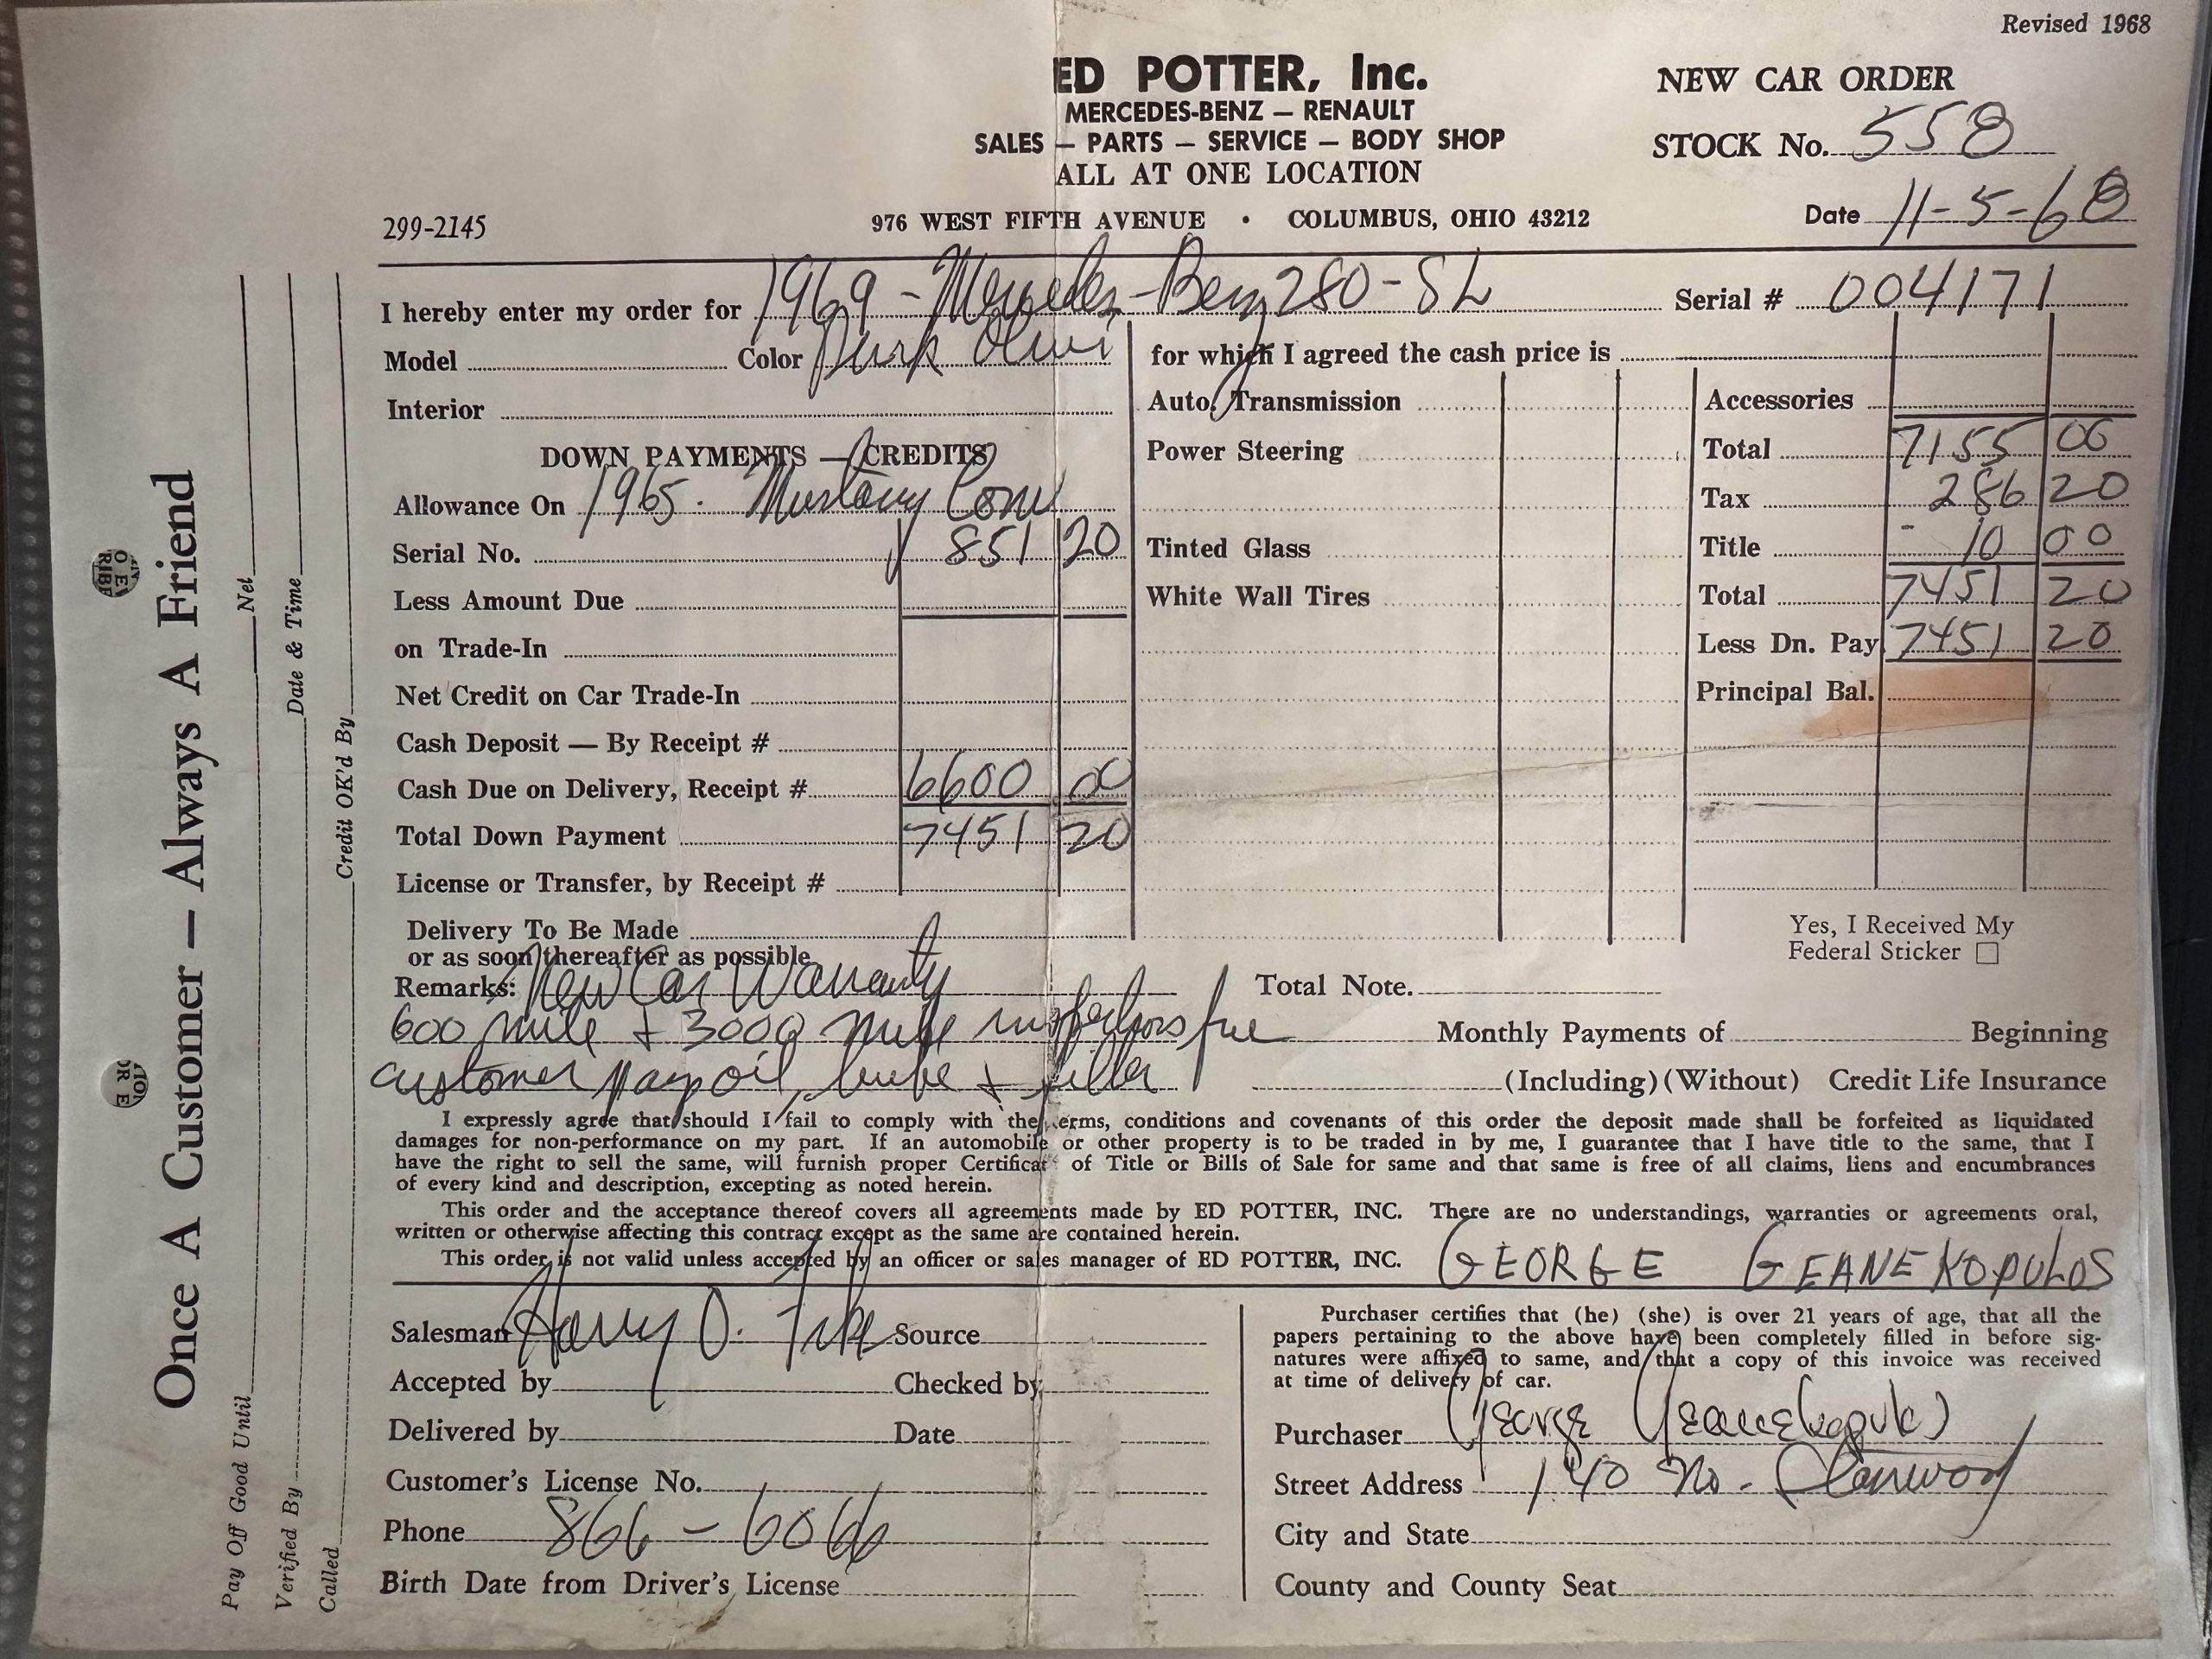 Revised 1968
ED POTTER, Inc.
MERCEDES-BENZ — RENAULT
SALES — PARTS — SERVICE — BODY SHOP
ALL AT ONE LOCATION
299-2145
976 WEST FIFTH AVENUE • COLUMBUS, OHIO 43212
NEW CAR ORDER
STOCK No. 558
Date 11-5-68
I hereby enter my order for 1969 - Mercedes-Benz 280-SL Serial # 004171
Model Color Dark Olive
for which I agreed the cash price is
Interior
Auto. Transmission
Accessories
DOWN PAYMENTS — CREDITS
Power Steering
Total 7155 00
Allowance On 1965 - Mustang Conv
Tax 286 20
Serial No. 851 20
Tinted Glass
Title 10 00
Less Amount Due
White Wall Tires
Total 7451 20
on Trade-In
Less Dn. Pay. 7451 20
Net Credit on Car Trade-In
Principal Bal.
Cash Deposit — By Receipt #
Cash Due on Delivery, Receipt # 6600 00
Total Down Payment 7451 20
License or Transfer, by Receipt #
Delivery To Be Made
or as soon thereafter as possible
Yes, I Received My
Federal Sticker
Remarks: New Car Warranty
Total Note.
600 mile + 3000 mile inspections free
Monthly Payments of Beginning
customer pays oil, lube + filter
(Including) (Without) Credit Life Insurance
I expressly agree that should I fail to comply with the terms, conditions and covenants of this order the deposit made shall be forfeited as liquidated
damages for non-performance on my part. If an automobile or other property is to be traded in by me, I guarantee that I have title to the same, that I
have the right to sell the same, will furnish proper Certificat of Title or Bills of Sale for same and that same is free of all claims, liens and encumbrances
of every kind and description, excepting as noted herein.
This order and the acceptance thereof covers all agreements made by ED POTTER, INC. There are no understandings, warranties or agreements oral,
written or otherwise affecting this contract except as the same are contained herein.
This order is not valid unless accepted by an officer or sales manager of ED POTTER, INC.
GEORGE GEANEKOPULOS
Salesman Harry O. Source
Accepted by Checked by
Delivered by Date
Customer's License No.
Phone 866-6066
Birth Date from Driver's License
Purchaser certifies that (he) (she) is over 21 years of age, that all the
papers pertaining to the above have been completely filled in before sig-
natures were affixed to same, and that a copy of this invoice was received
at time of delivery of car.
Purchaser George Geanekopulos
Street Address 140 No.
City and State
County and County Seat
Once A Customer — Always A Friend
Pay Off Good Until Net
Verified By Date & Time
Called Credit OK'd By